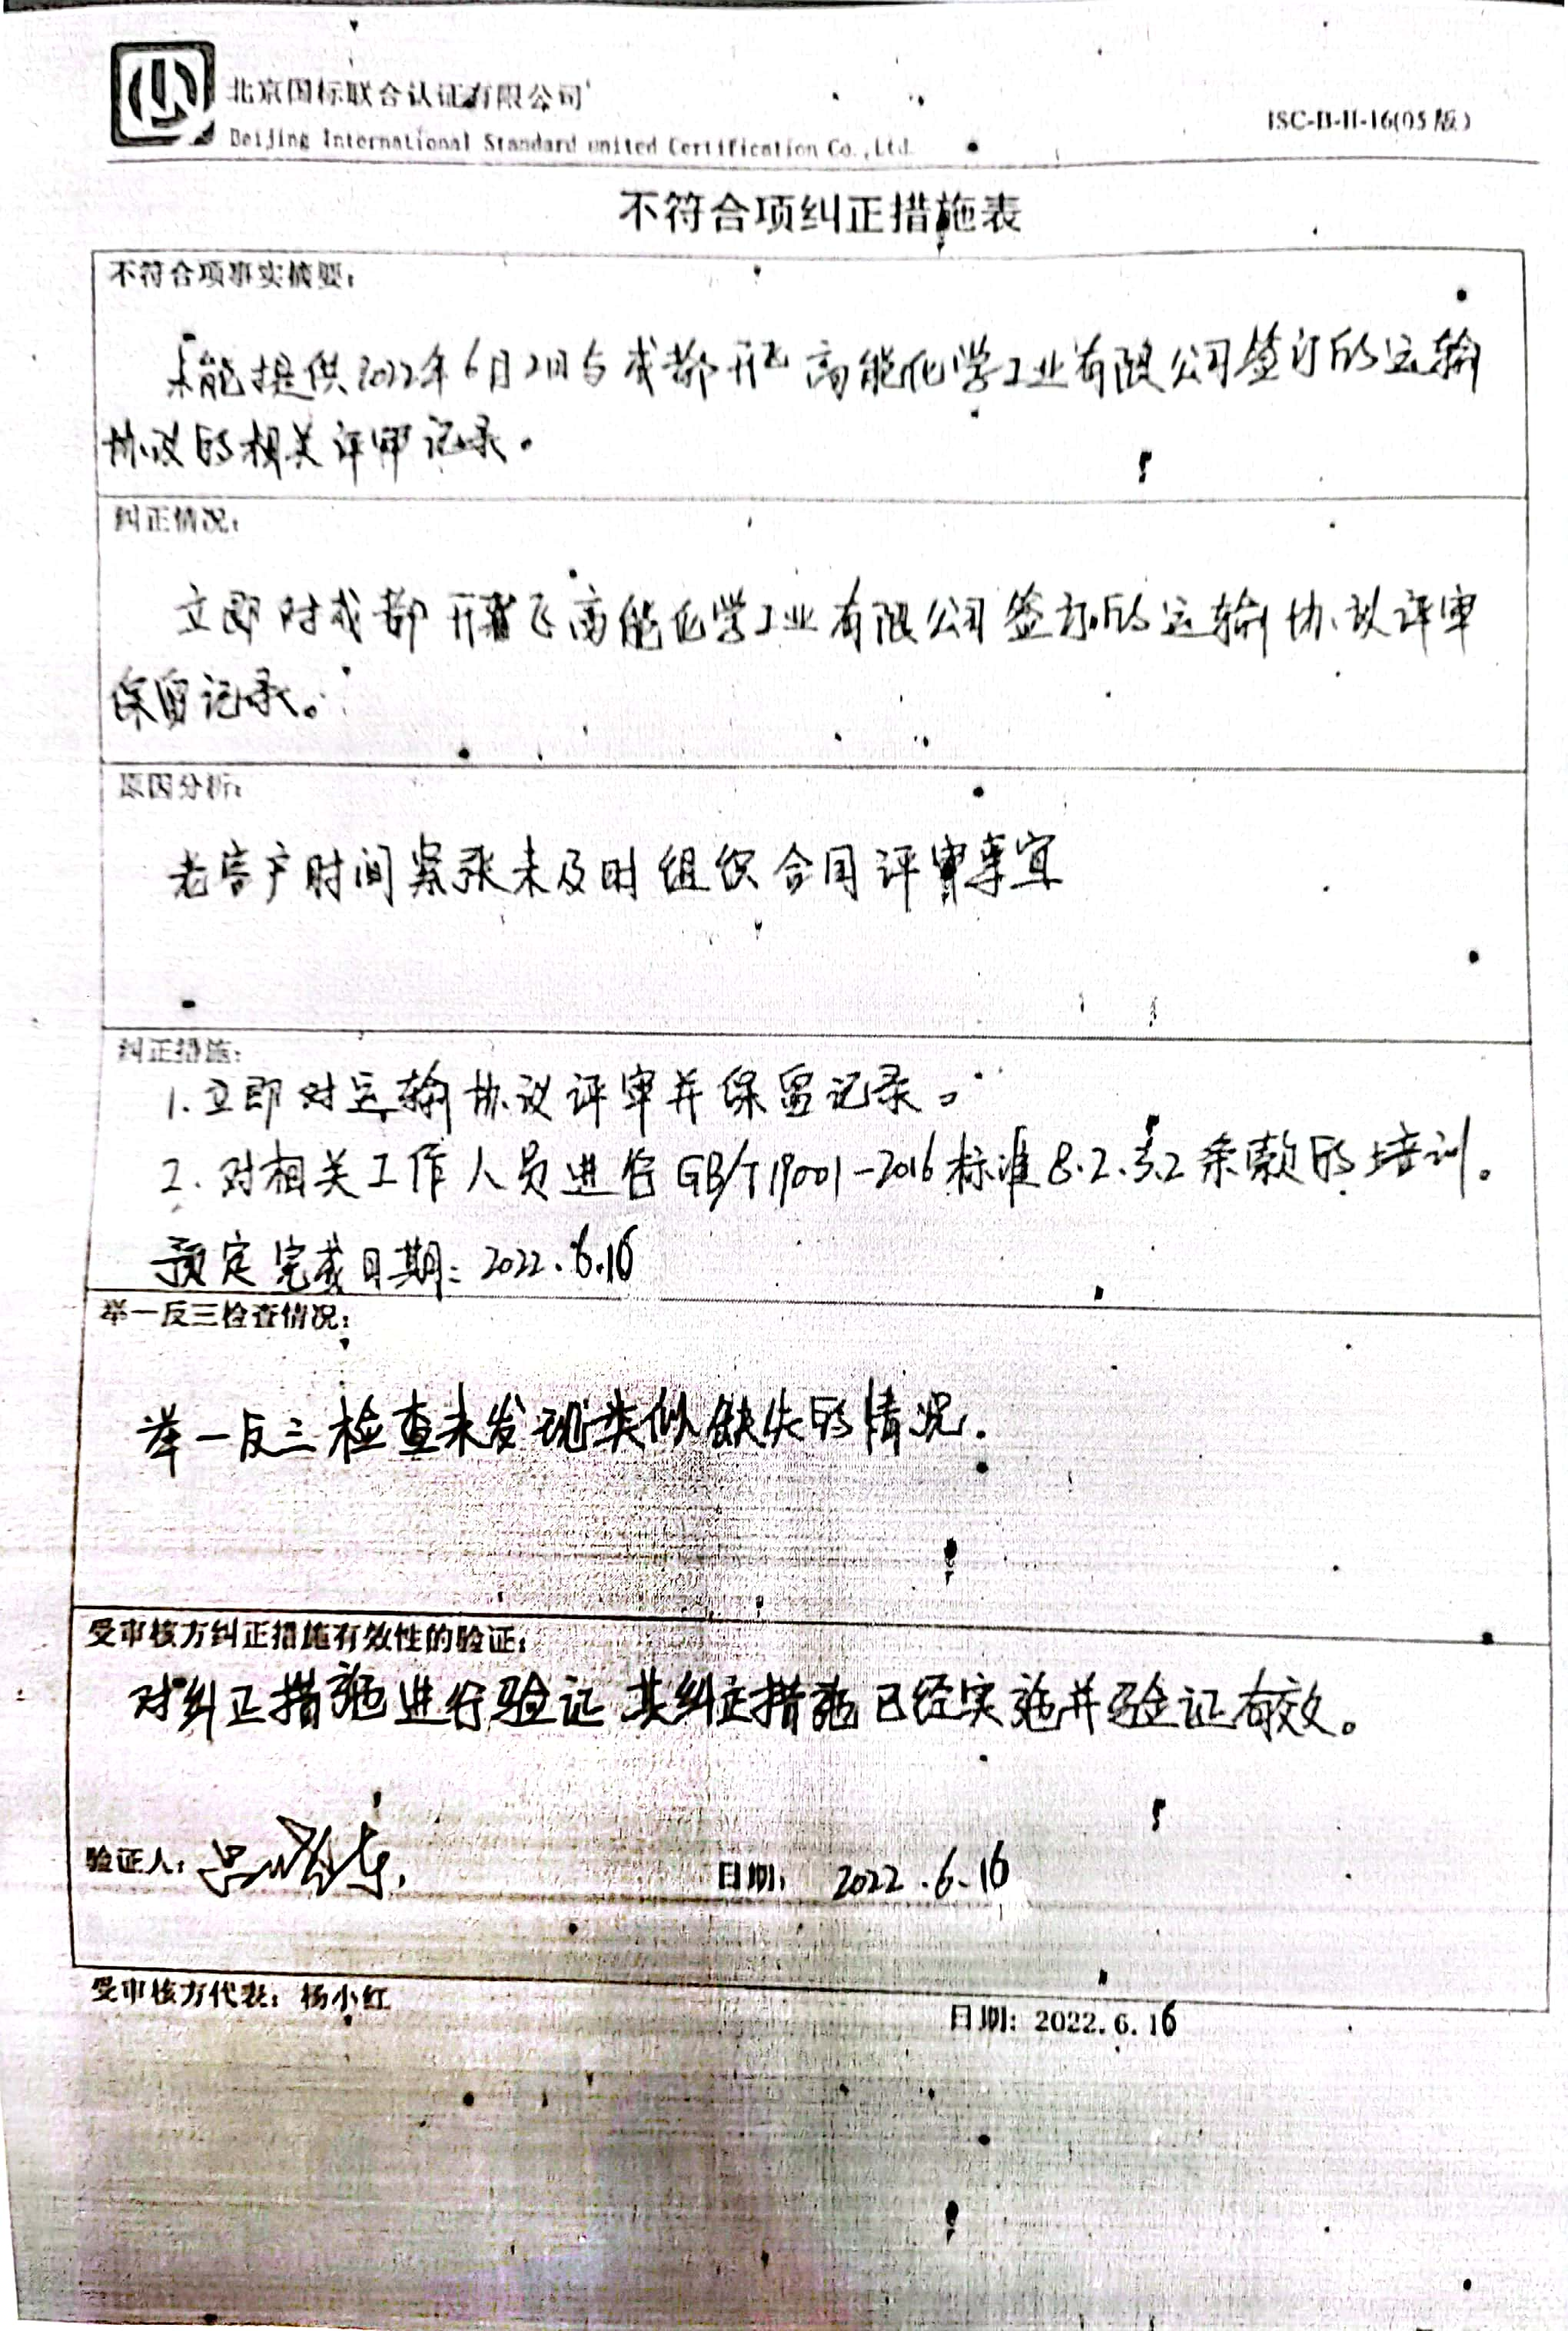 北京国标联合认证有限公司
ISC-B-II-16(05版)
Beijing International Standard united Certification Co.,Ltd.
不符合项纠正措施表
不符合项事实摘要:
未能提供2022年6月2日与成都开飞高能化学工业有限公司签订的运输
协议的相关评审记录。
纠正情况:
立即对成都开飞高能化学工业有限公司签订的运输协议评审
保留记录。
原因分析:
老客户时间紧张未及时组织合同评审事宜
纠正措施:
1.立即对运输协议评审并保留记录。
2.对相关工作人员进行GB/T19001-2016标准8.2.3.2条款的培训。
预定完成日期:2022.6.16
举一反三检查情况:
举一反三检查未发现类似缺失的情况.
受审核方纠正措施有效性的验证:
对纠正措施进行验证 其纠正措施已经实施并验证有效。
验证人: 日期: 2022.6.16
受审核方代表: 杨小红 日期: 2022.6.16